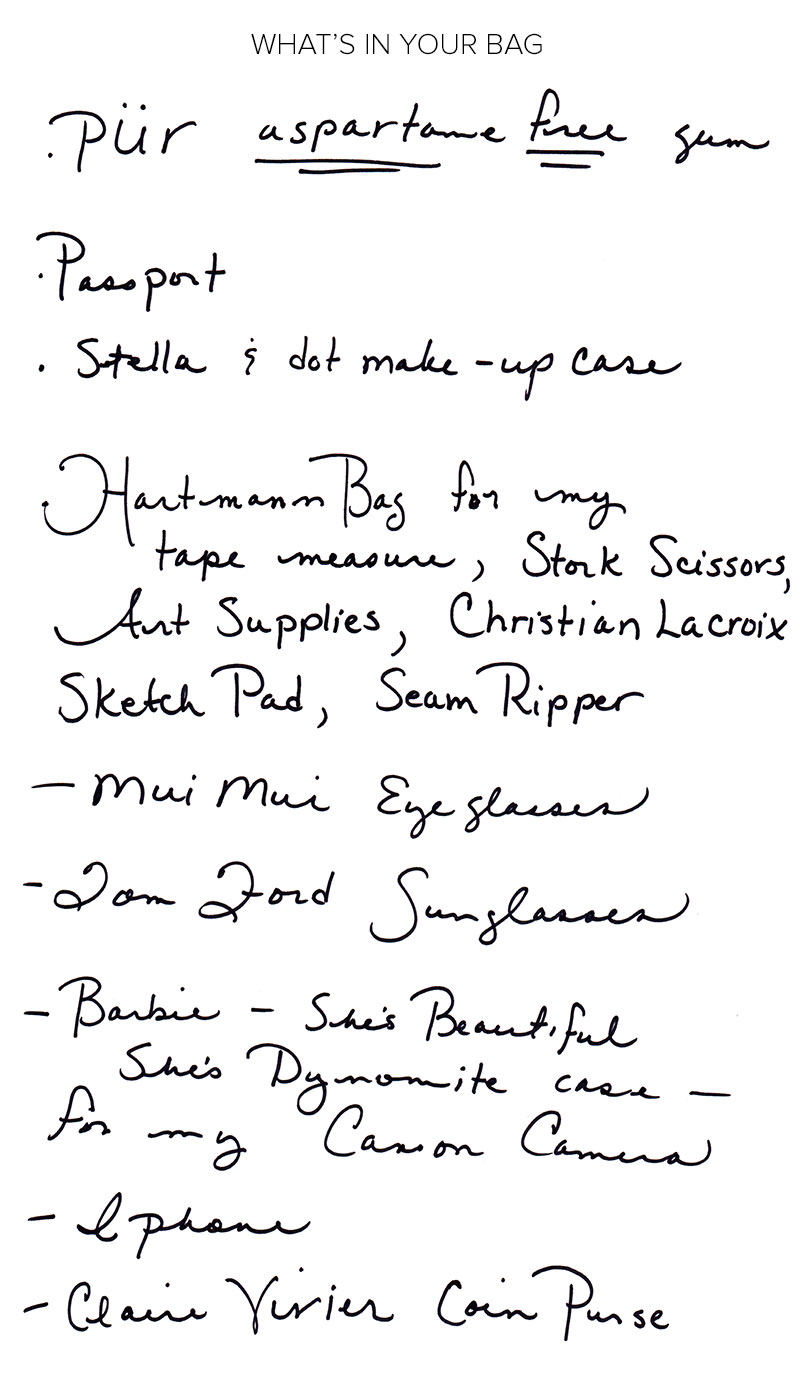 WHAT'S IN YOUR BAG
. Pür aspartame free gum
· Passport
. Stella & dot make-up case
Hartmann Bag for my
tape measure, Stork Scissors,
Art Supplies, Christian Lacroix
Sketch Pad, Seam Ripper
- Mui Mui Eyeglasses
- Tom Ford Sunglasses
- Barbie - She's Beautiful
She's Dynomite case -
for my Canon Camera
- I phone
- Claire Vivier Coin Purse